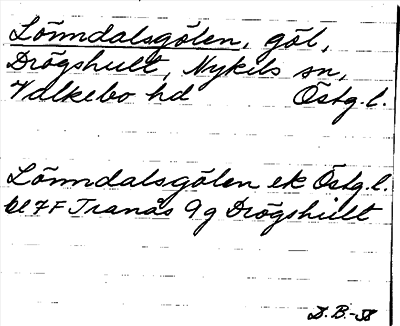 Lönndalsgölen, göl,
Drögshult, Nykils sn,
Valkebo hd Östg.l.
Lönndalsgölen ek Östg.l.
bl 7F Tranås 9g Drögshult
D.B.-58